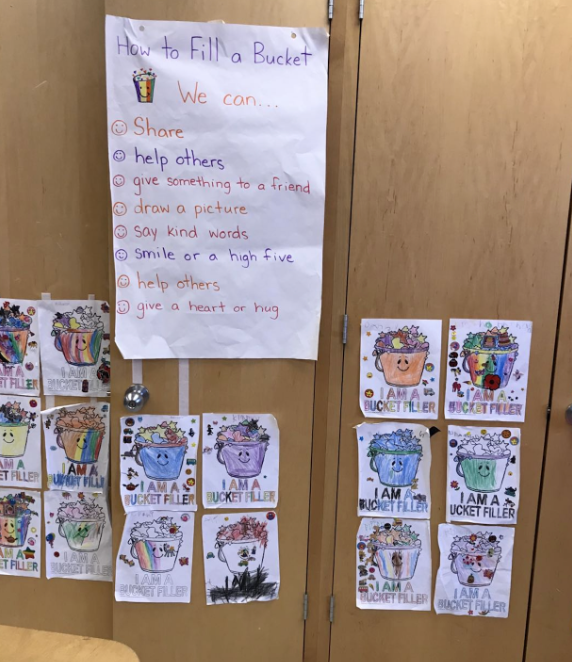 How to Fill a Bucket
We can...
Share
help others
give something to a friend
draw a picture
say kind words
smile or a high five
help others
give a heart or hug
I AM A
BUCKET FILLER
I AM A
BUCKET
I AM A
BUCKET FILLER
I AM A
BUCKET FILLER
I AM A
FILLER
I AM A
BUCKET FILLER
I AM A
UCKET FILLER
I AM A
FILLER
I AM A
BUCKET FILLER
I AM A
BUCKET FILLER
I AM A
BUCKET FILLER
I AM A
UCKET FILLER
I AM A
BUCKET FILLER
I AM A
BUCKET FILLER
I AM A
BUCKET FILLER